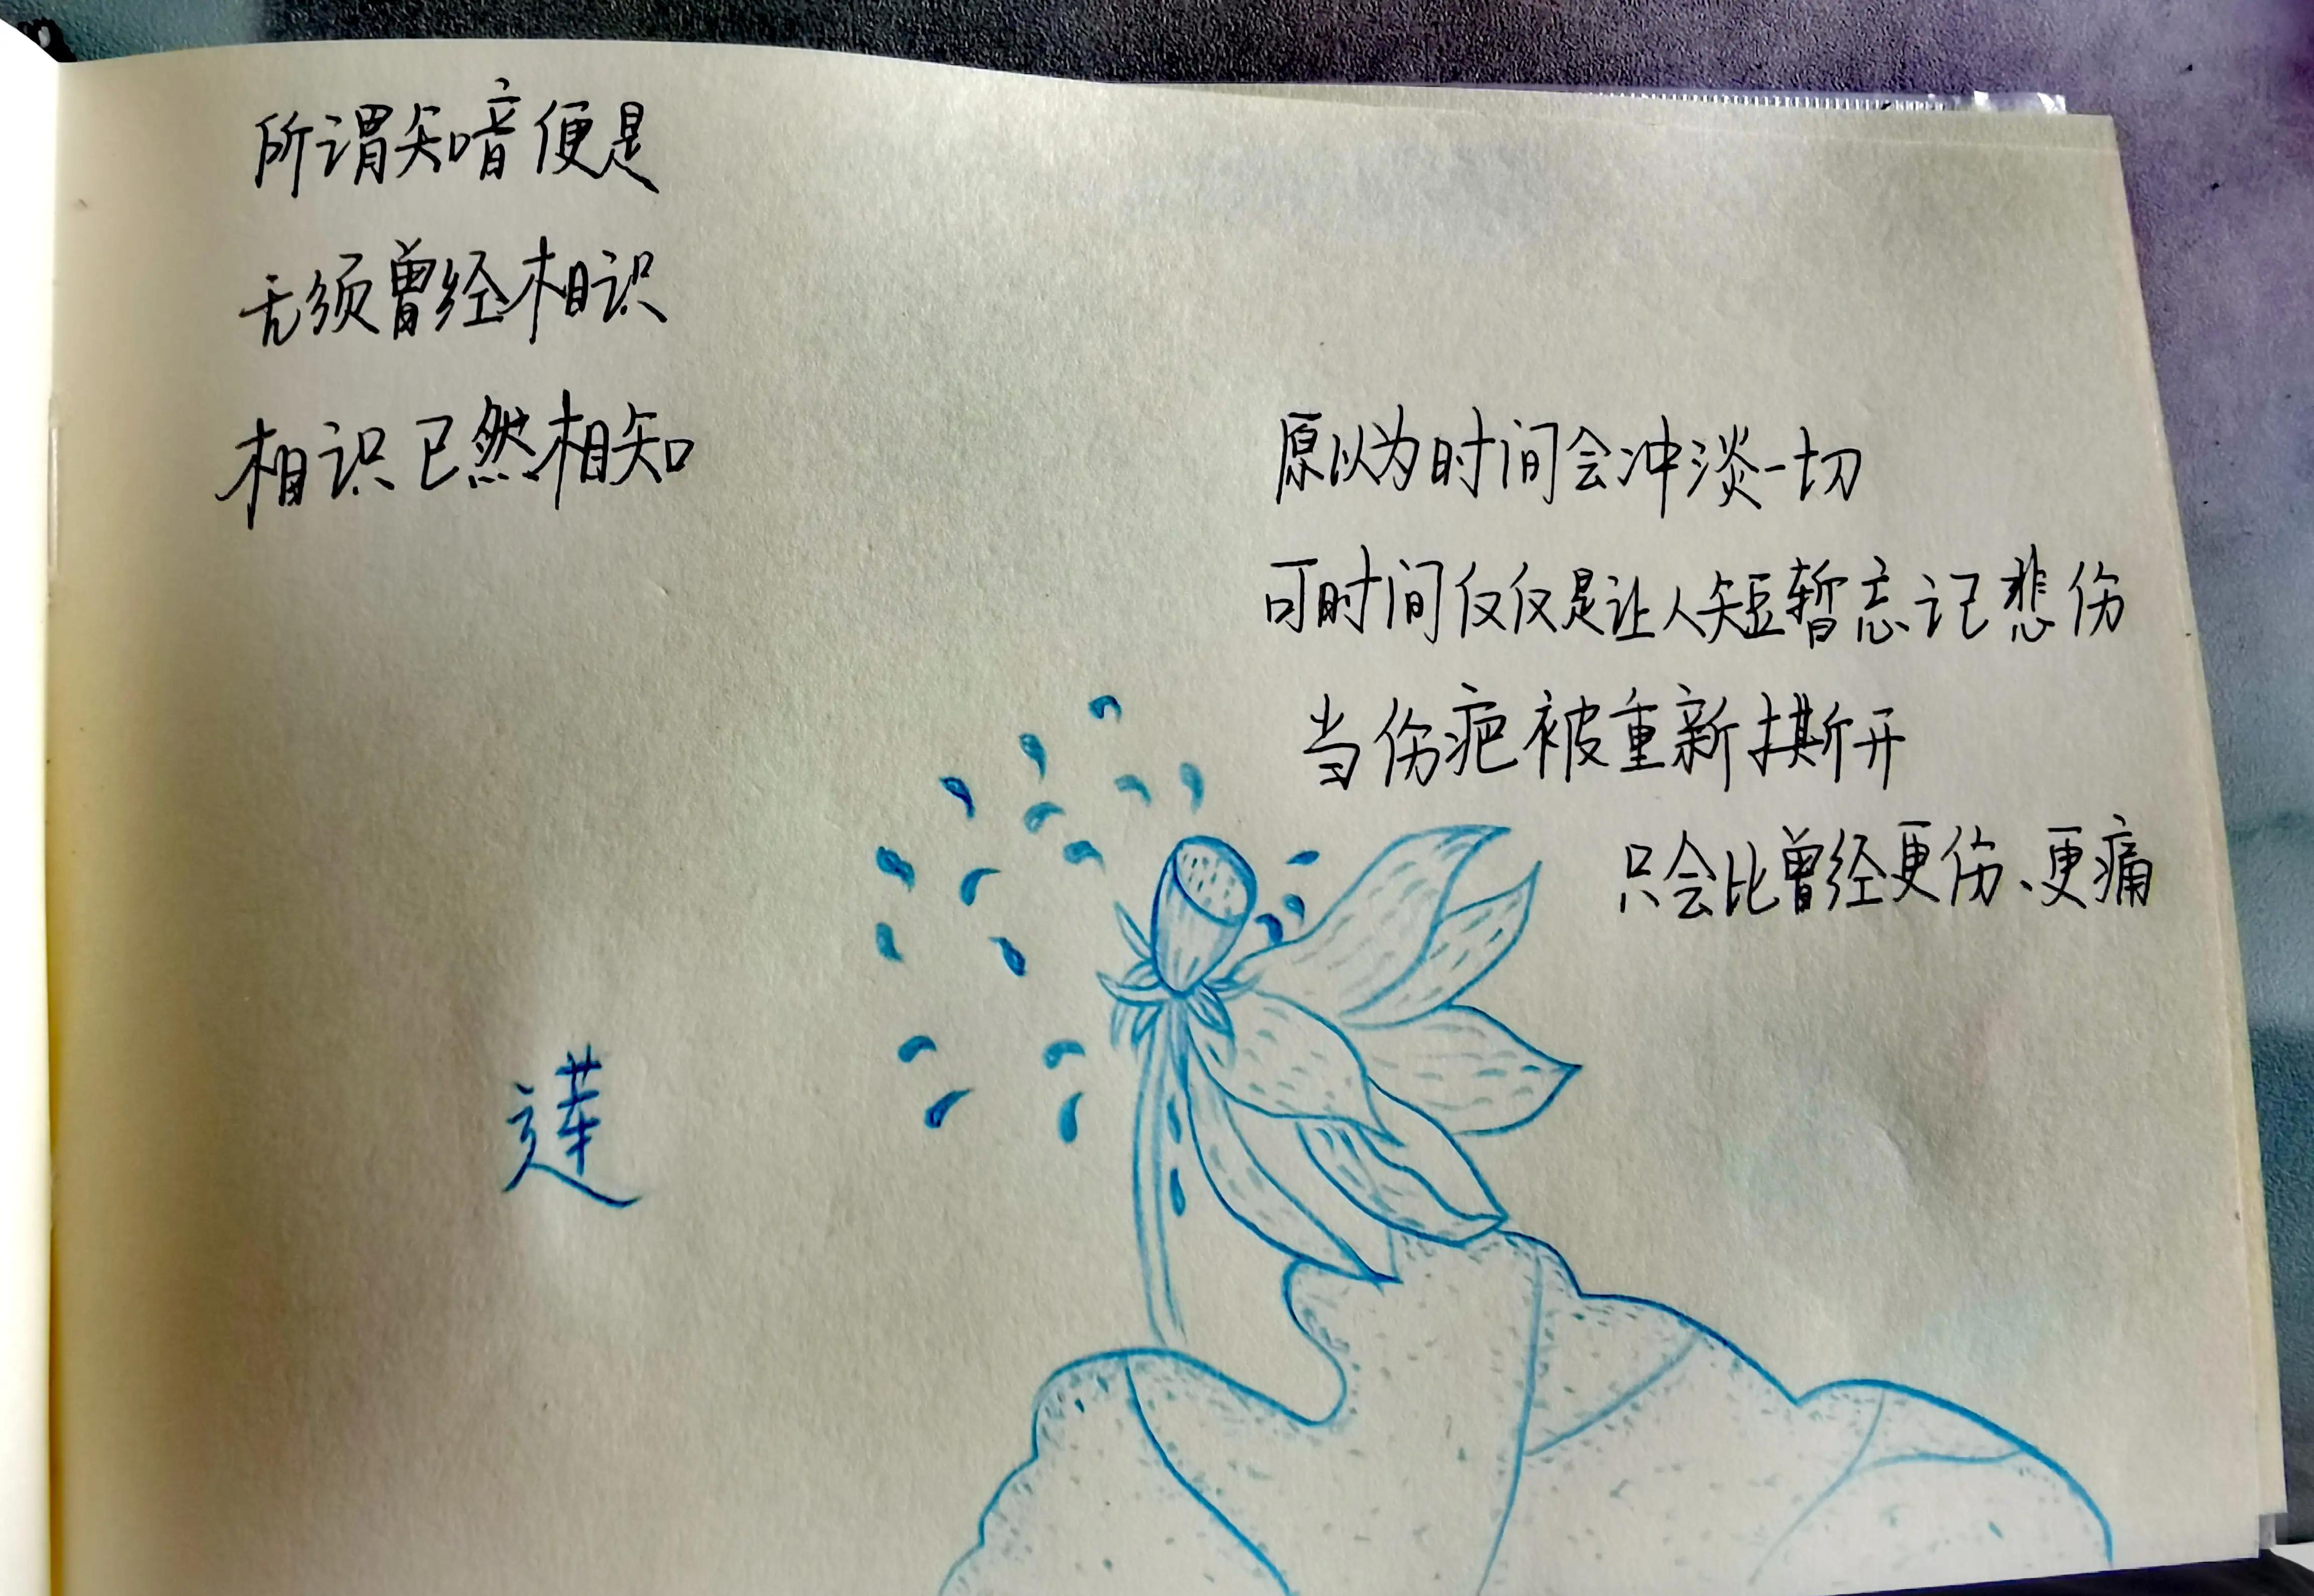 所谓知音便是
无须曾经相识
相识已然相知
原以为时间会冲淡一切
可时间仅仅是让人短暂忘记悲伤
当伤疤被重新撕开
只会比曾经更伤、更痛
莲